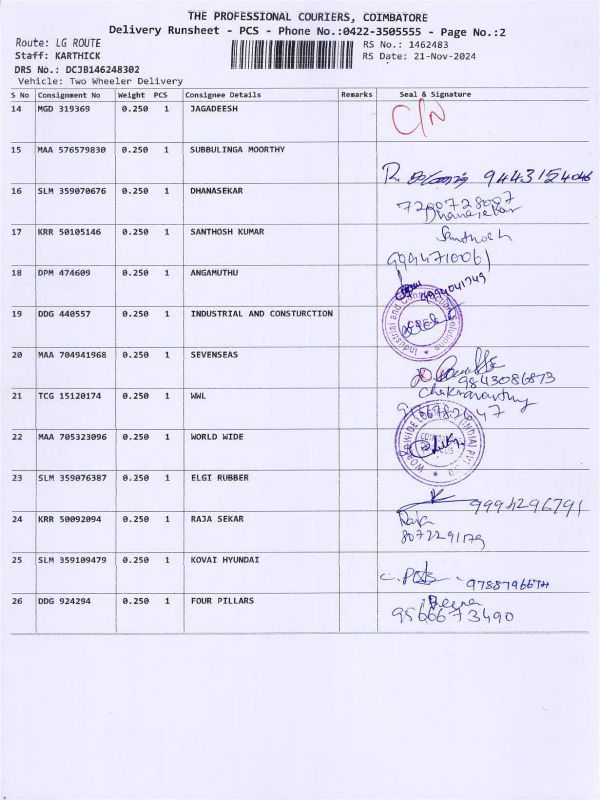 THE PROFESSIONAL COURIERS, COIMBATORE
Delivery Runsheet - PCS - Phone No.:0422-3505555 - Page No.:2
Route: LG ROUTE
RS No.: 1462483
Staff: KARTHICK
RS Date: 21-Nov-2024
DRS No.: DCJB146248302
Vehicle: Two Wheeler Delivery
S No Consignment No Weight PCS Consignee Details Remarks Seal & Signature
14 MGD 319369 0.250 1 JAGADEESH
C/N
15 MAA 576579830 0.250 1 SUBBULINGA MOORTHY
R. 9443154046
16 SLM 359070676 0.250 1 DHANASEKAR
7200728007
Dhanasekar
17 KRR 50105146 0.250 1 SANTHOSH KUMAR
Santhosh
9994710061
18 DPM 474609 0.250 1 ANGAMUTHU
9994041749
19 DDG 440557 0.250 1 INDUSTRIAL AND CONSTURCTION
20 MAA 704941968 0.250 1 SEVENSEAS
9843086873
21 TCG 15120174 0.250 1 WWL
Chakravarthy
22 MAA 705323096 0.250 1 WORLD WIDE
WORLDWIDE (INDIA) PVT LTD
23 SLM 359076387 0.250 1 ELGI RUBBER
9994296791
24 KRR 50092094 0.250 1 RAJA SEKAR
8072291179
25 SLM 359109479 0.250 1 KOVAI HYUNDAI
26 DDG 924294 0.250 1 FOUR PILLARS
9566673490